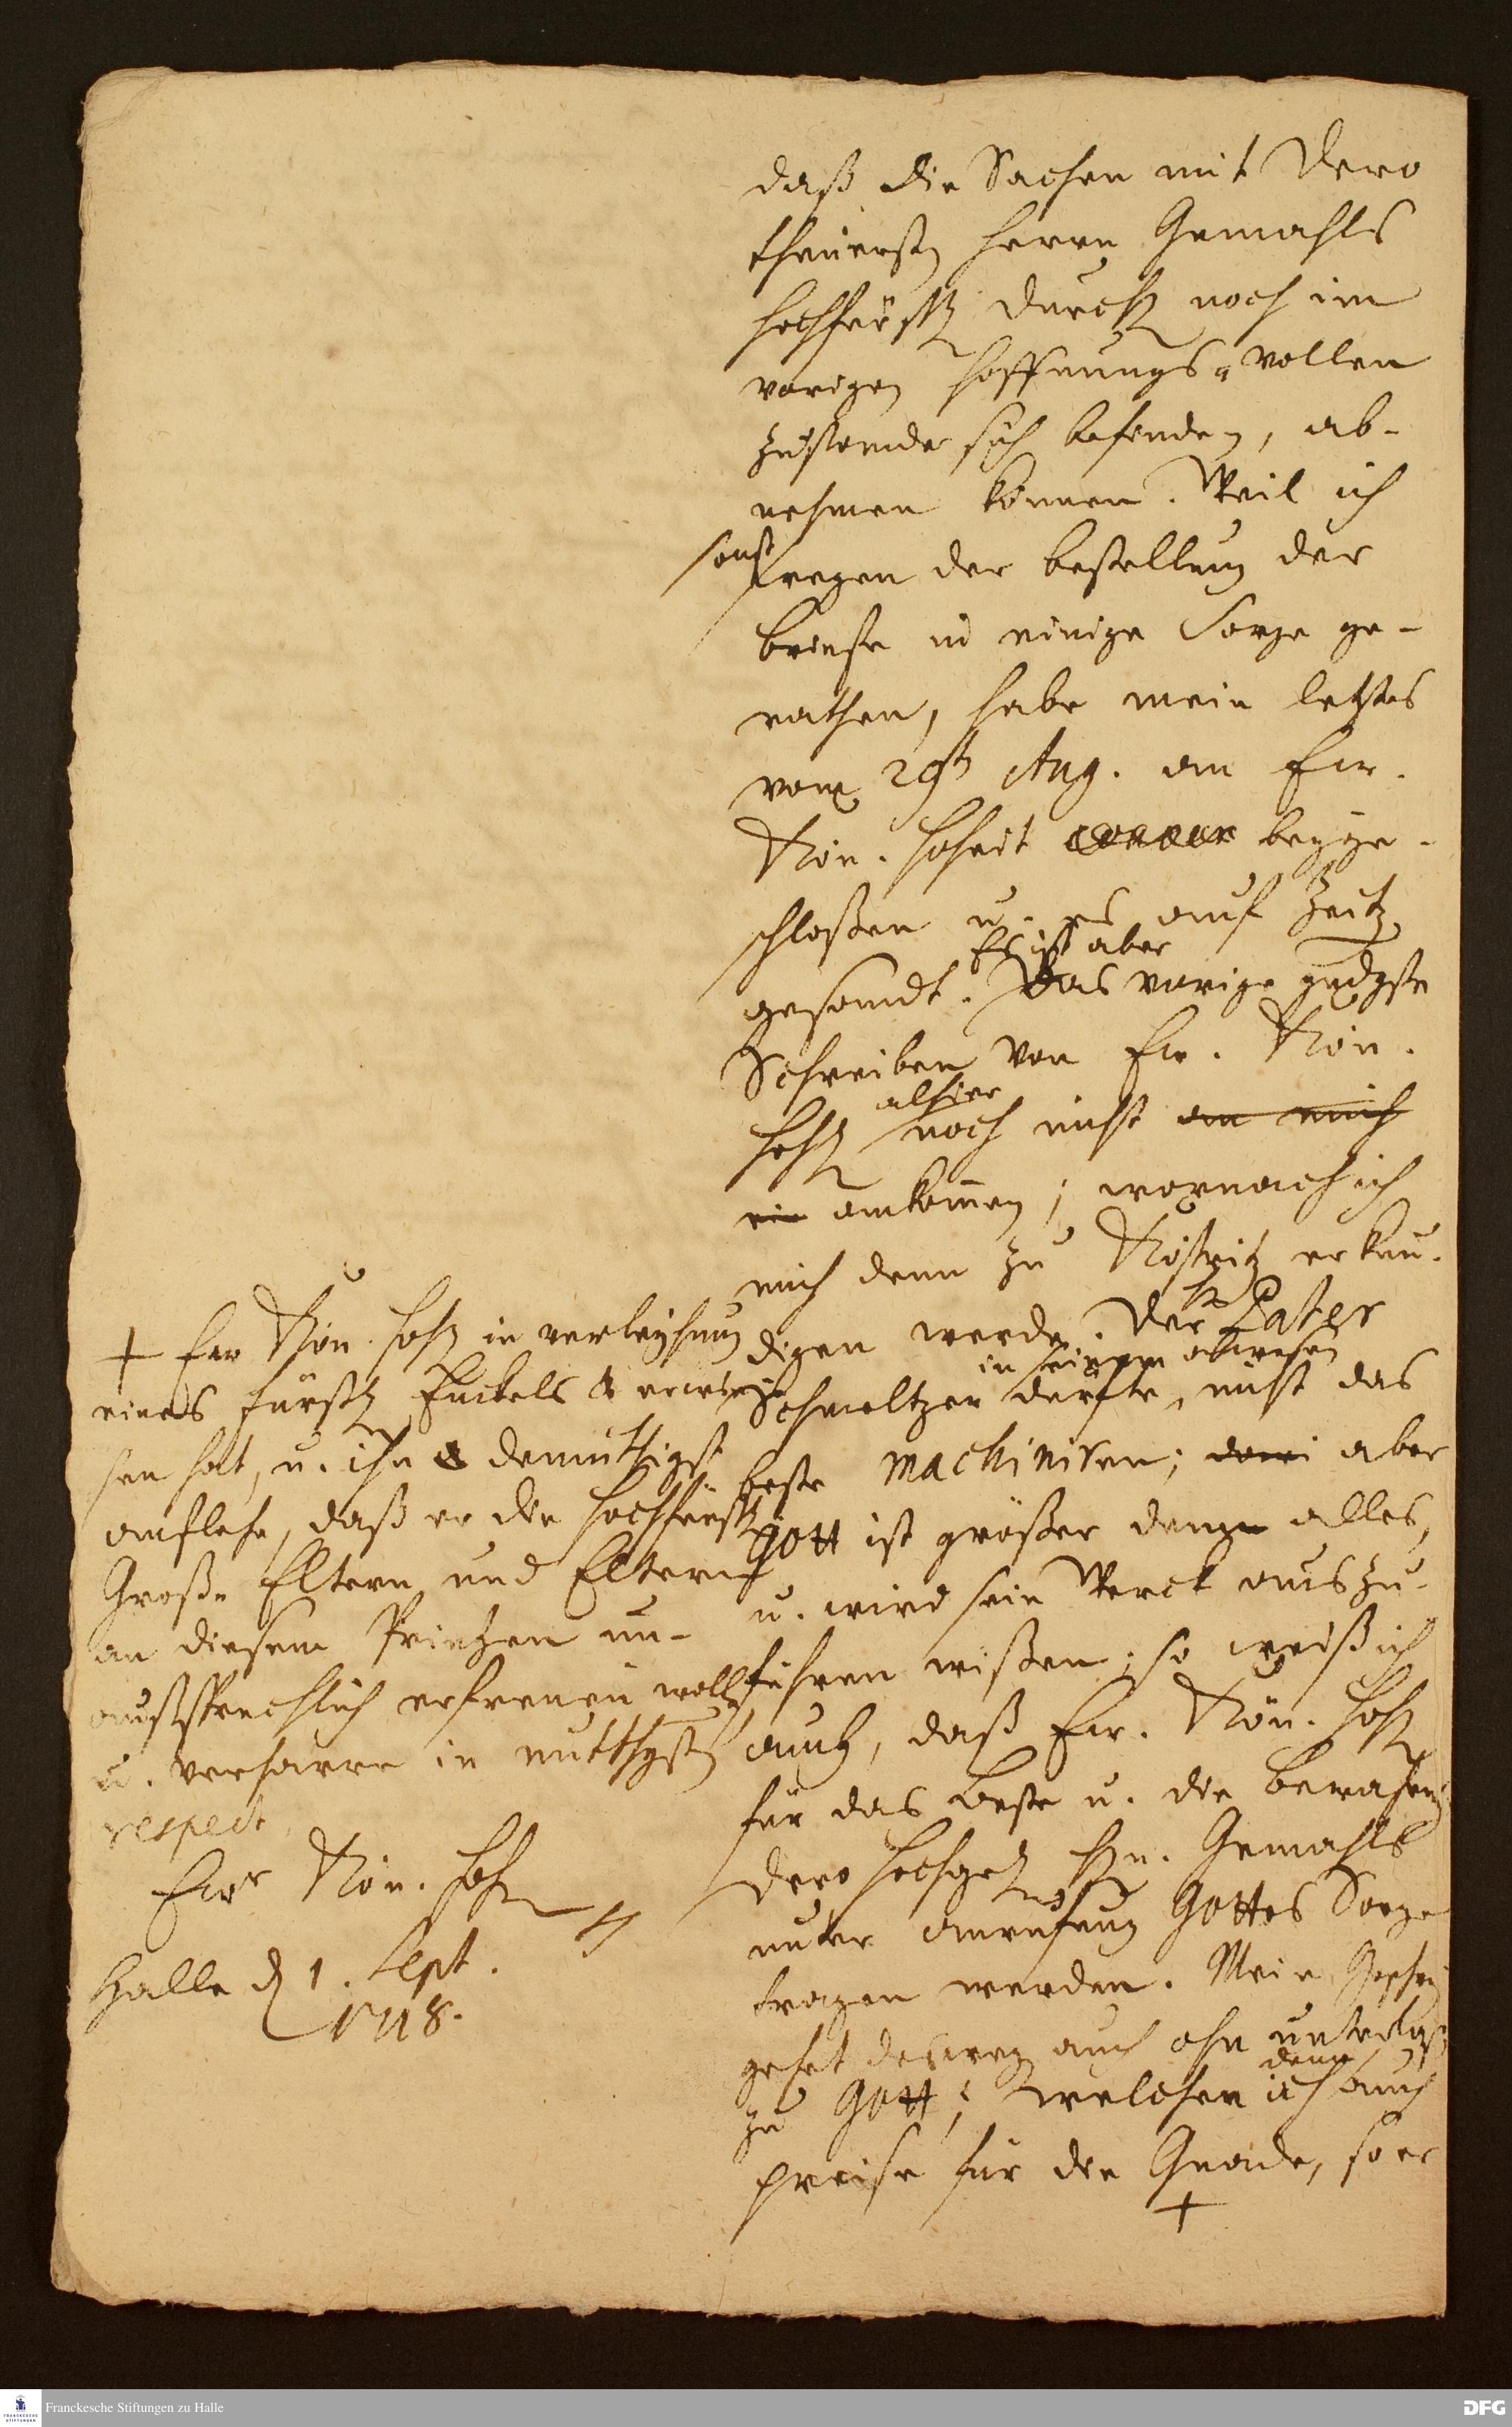 daß die Sachen mit Dero
theuersten Herrn Gemahls
Hochfürstl Durchl noch im
vorigen Hoffnungs-vollen
Zustande sich befinden, ab-
nehmen können. Weil ich
sonst
wegen der bestellung der
briefe in einige Sorge ge-
rathen, habe mein letztes
vom 29st Aug. an Ew.
Kön. Hoheit beyge-
schloßen u. es auf Zeitz
gesandt. Es ist aber
Das vorige gndgste
Schreiben von Ew. Kön.
alhier
Hoh noch nicht an mich
ein ankommen; wornach ich
mich denn zu Köstritz erkun-
digen werde. Der Pater
in seinem abwesen
Schmeltzer derfte nicht das
beste machiniren; aber
Gott ist größer denn alles,
u. wird sein Werck auszu-
führen wißen; so weiß ich
auch, daß Ew. Kön. Hoh
für das beste u. die bewahrung
Dero Hochgel Hn. Gemahls
unter anruffung Gottes Sorge
tragen werden. Mein
gehet deswegen auch ohn unterlaß
zu Gott; welchen ich denn auch
preise für die Gnade, so er
+
+ Ew Kön. Hoh in verleyhung
eines Fürstl Enckels erwie-
sen hat, u. ihn demüthigst
anflehe, daß er die Hochfürstl
Groß-Eltern und Eltern
an diesem Printzen un-
außsprechlich erfreuen wolle
u. verharre in
respect
Ewr Kön. Hoh
Halle d 1. Sept.
1718.
Franckesche Stiftungen zu Halle
DFG